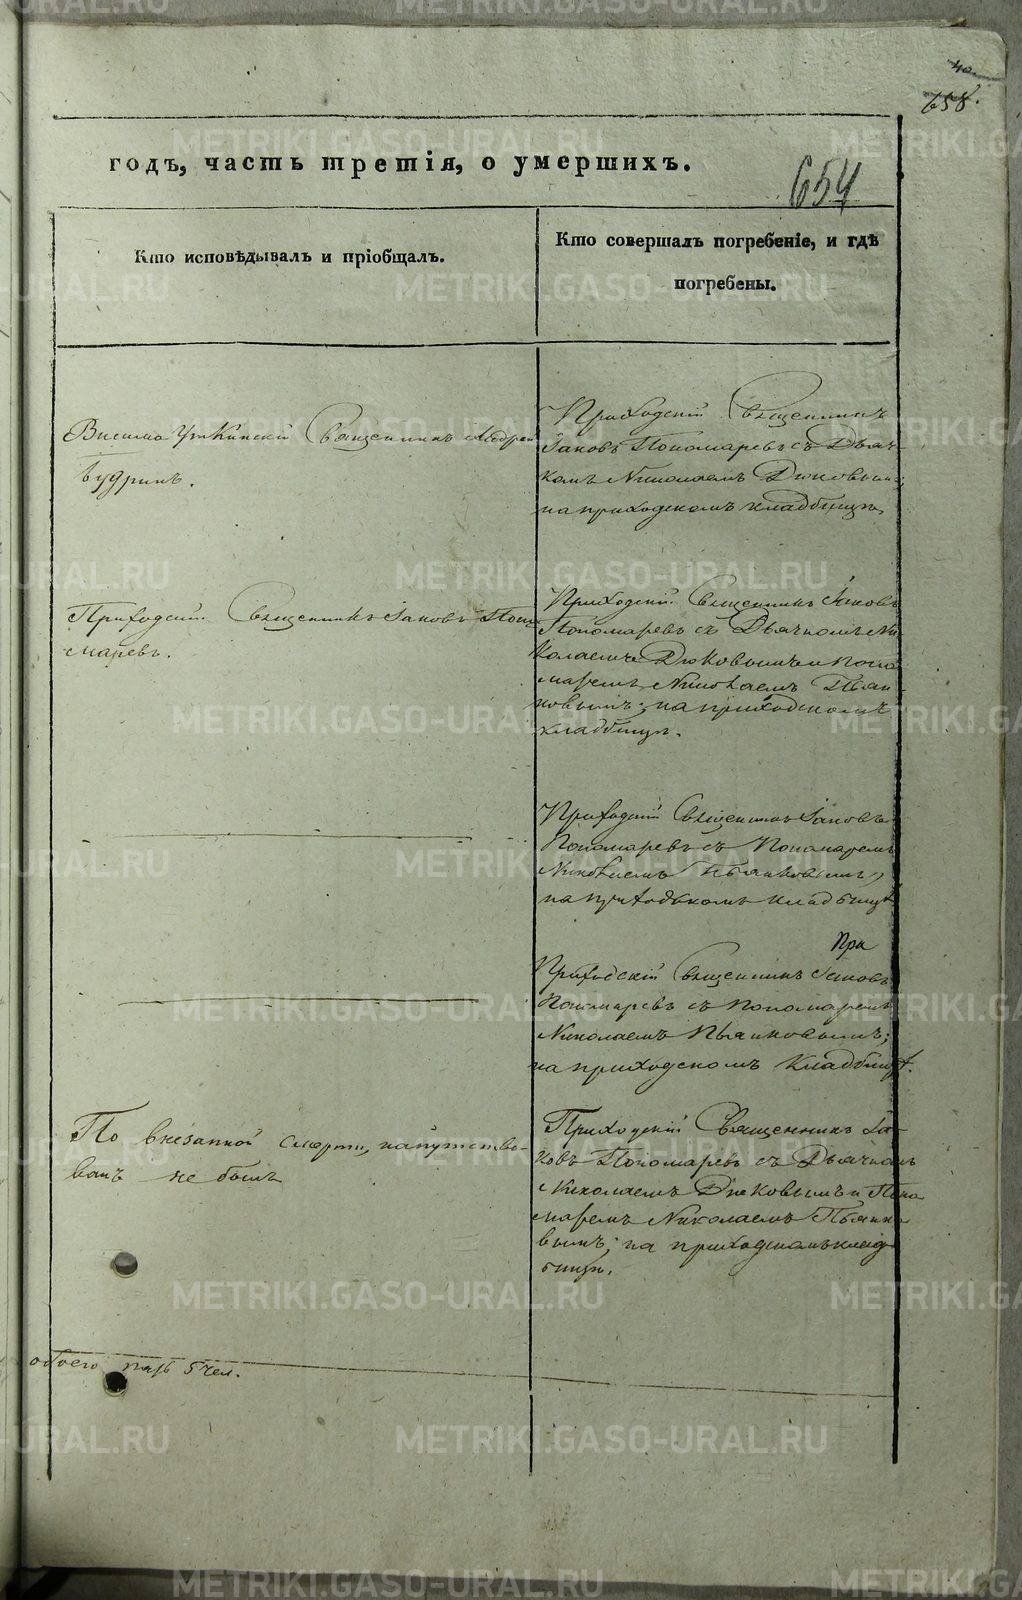 40
658.
годъ, часть третія, о умершихъ.
654
Кто исповѣдывалъ и пріобщалъ.
Кто совершалъ погребеніе, и гдѣ
погребены.
Висимо Уткинскій Священникъ Андрей
Будринъ.
Приходскій Священникъ
Іаковъ Пономаревъ съ Дьяч-
комъ Николаемъ Дюковымъ;
на приходскомъ кладбищѣ.
Приходскій Священникъ Іаковъ Поно
маревъ.
Приходскій Священникъ Іаковъ
Пономаревъ съ Дьячкомъ Ни
колаемъ Дюковымъ и Поно
маремъ Николаемъ Пьян-
ковымъ; на приходскомъ
кладбищѣ.
Приходскій Священникъ Іаковъ
Пономаревъ съ Пономаремъ
Николаемъ Пьянковымъ,
на приходскомъ кладбищѣ
При
Приходскій Священникъ Іаковъ
Пономаревъ съ Пономаремъ
Николаемъ Пьянковымъ;
на приходскомъ кладбищѣ.
По внезапной смерти, напутство-
ванъ не былъ
Приходскій Священникъ Іа-
ковъ Пономаревъ съ Дьячкомъ
Николаемъ Дюковымъ и Поно
маремъ Николаемъ Пьянко
вымъ; на приходскомъ клад
бищѣ.
обоего пола 5 чел.
METRIKI.GASO-URAL.RU